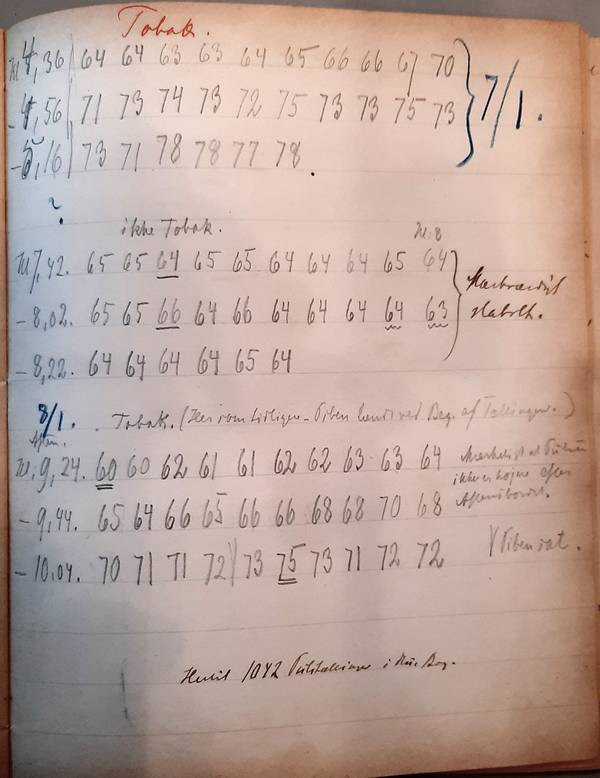 Tobak.
Kl 4,36 64 64 63 63 64 65 66 66 67 70
- 4,56 71 73 74 73 72 75 73 73 75 73 7/1.
- 5,16 73 71 78 78 77 78.
?
ikke Tobak.
Kl. 8
Kl 7,42. 65 65 64 65 65 64 64 64 65 64
Mærkværdigt
- 8,02. 65 65 66 64 66 64 64 64 64 63
stabilt.
- 8,22. 64 64 64 64 65 64
8/1. Tobak. (Her som tidligere - Piben tændt ved Beg. af Tællingen.)
Aften.
Kl. 9,24. 60 60 62 61 61 62 62 63 63 64
Mærkeligt at Pulsen
ikke er højere efter
- 9,44. 65 64 66 65 66 66 68 68 70 68
- 10,04. 70 71 71 72 73 75 73 71 72 72
Piben
Hertil 1042 Pulstællinger i